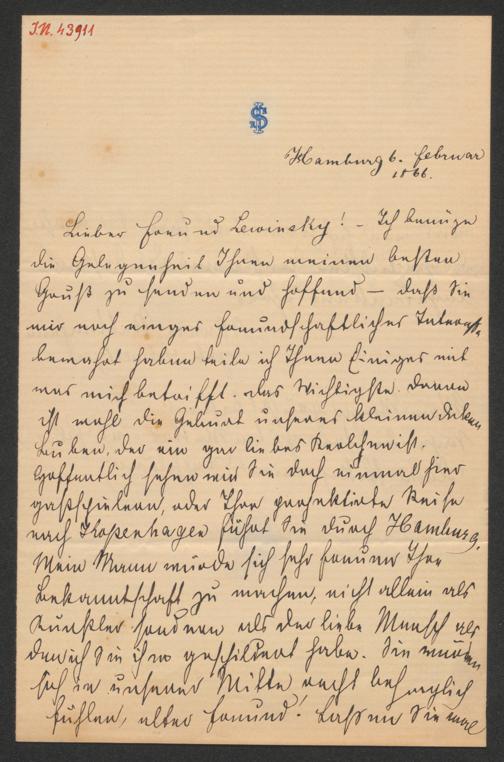 I.N. 43911
Hamburg 6. Februar
1866.
Lieber Freund Lewinsky! – Ich benüze
die Gelegenheit Ihnen meinen besten
Gruß zu senden und hoffend – daß Sie
mir noch einiges freundschaftliches Interesse
bewahrt haben teile ich Ihnen Einiges mit
was mich betrifft. das Wichtigste davon
ist wohl die Geburt unseres kleinen dicken
Buben, der ein gar liebes Kerlchen ist.
Hoffentlich sehen wir Sie doch einmal hier
gastspielen, oder Ihre projektirte Reise
nach Kopenhagen führt Sie durch Hamburg.
Mein Mann würde sich sehr freuen Ihre
Bekanntschaft zu machen, nicht allein als
Künstler sondern als der liebe Mensch als
den ich Sie ihm geschildert habe. Sie müßten
sich in unserer Mitte recht behaglich
fühlen, alter Freund! Lassen Sie mal